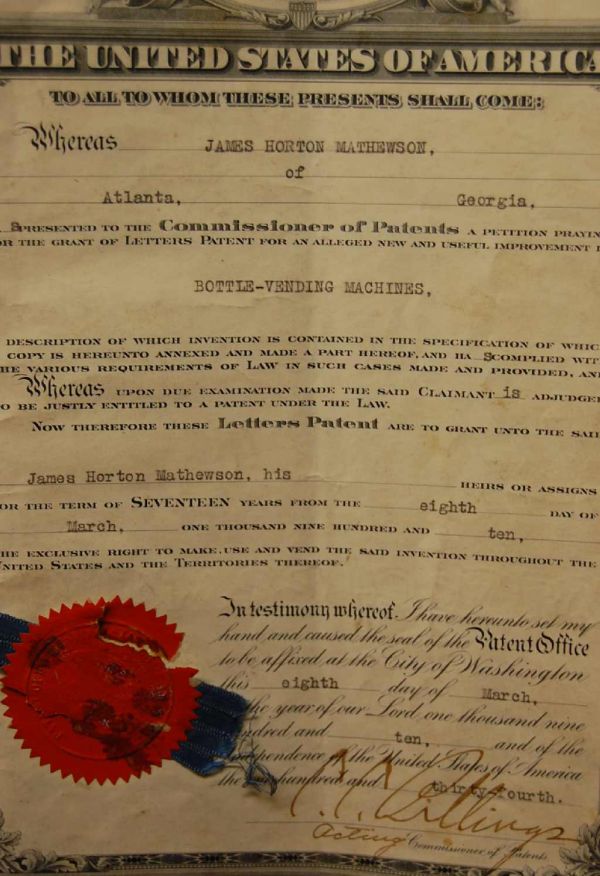 THE UNITED STATES OF AMERICA
TO ALL TO WHOM THESE PRESENTS SHALL COME:
Whereas JAMES HORTON MATHEWSON,
of
Atlanta, Georgia,
PRESENTED TO THE Commissioner of Patents A PETITION PRAYIN
OR THE GRANT OF LETTERS PATENT FOR AN ALLEGED NEW AND USEFUL IMPROVEMENT I
BOTTLE-VENDING MACHINES,
DESCRIPTION OF WHICH INVENTION IS CONTAINED IN THE SPECIFICATION OF WHIC
COPY IS HEREUNTO ANNEXED AND MADE A PART HEREOF, AND HA S COMPLIED WIT
HE VARIOUS REQUIREMENTS OF LAW IN SUCH CASES MADE AND PROVIDED, AN
Whereas UPON DUE EXAMINATION MADE THE SAID CLAIMANT is ADJUDGE
O BE JUSTLY ENTITLED TO A PATENT UNDER THE LAW.
NOW THEREFORE THESE Letters Patent ARE TO GRANT UNTO THE SAI
James Horton Mathewson, his HEIRS OR ASSIGNS
OR THE TERM OF SEVENTEEN YEARS FROM THE eighth DAY OF
March, ONE THOUSAND NINE HUNDRED AND ten,
HE EXCLUSIVE RIGHT TO MAKE, USE AND VEND THE SAID INVENTION THROUGHOUT THE
UNITED STATES AND THE TERRITORIES THEREOF.
In testimony whereof, I have hereunto set my
hand and caused the seal of the Patent Office
to be affixed at the City of Washington
this eighth day of March,
the year of our Lord one thousand nine
ndred and ten, and of the
dependence of the United States of America
the hundred and thirty-fourth.
Billings
Acting Commissioner of Patents.